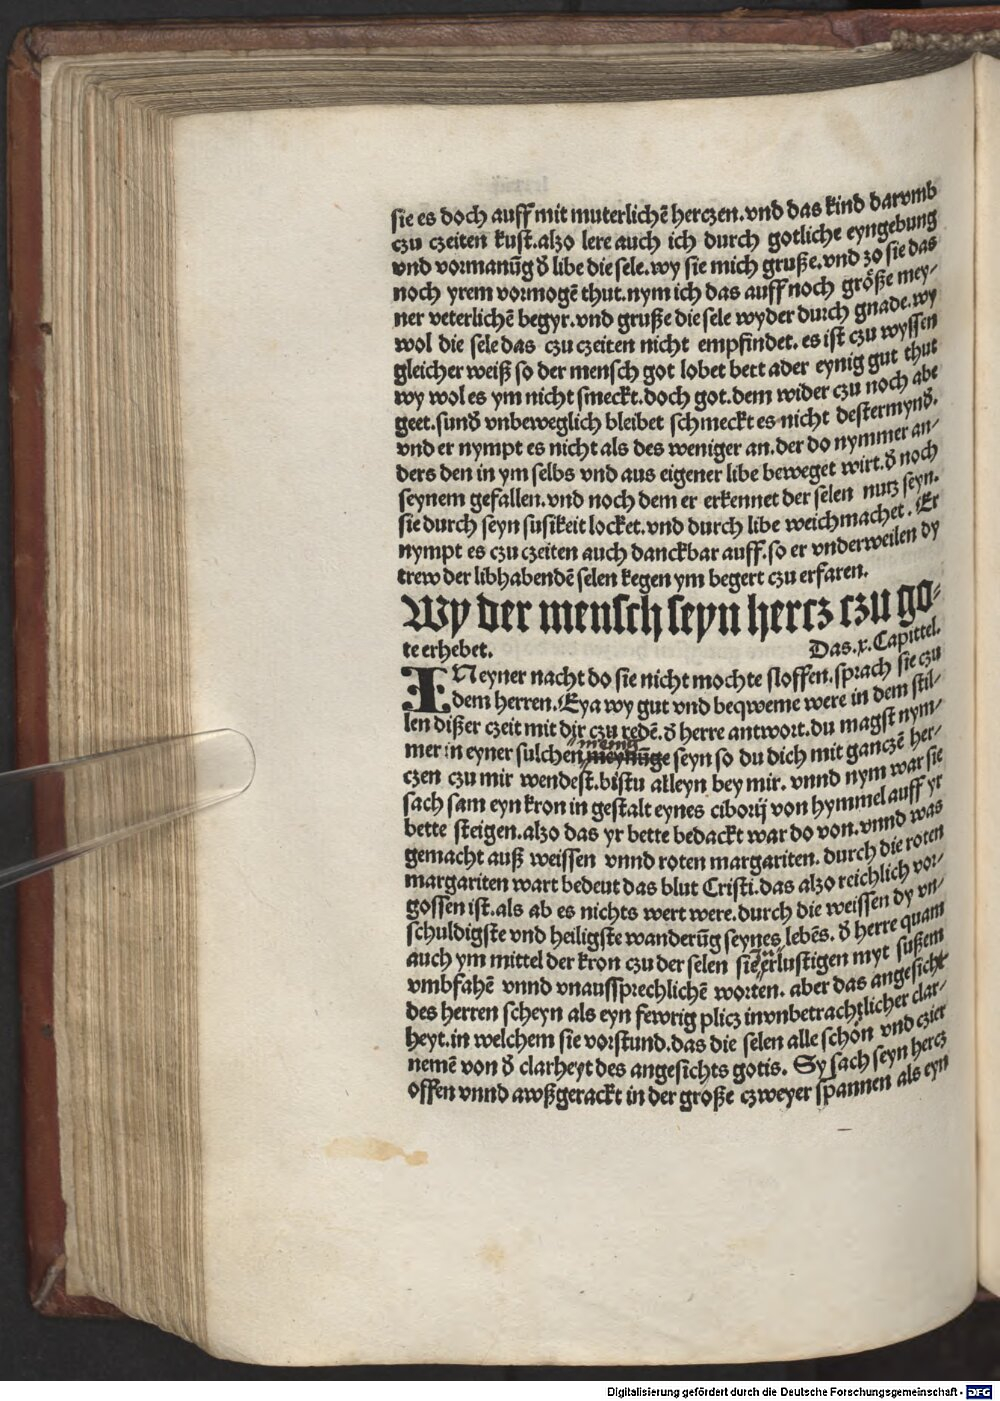 sie es doch auff mit muterlichē herczen.vnd das kind darvmb
czu czeiten kust.alzo lere auch ich durch gotliche eyngebung
vnd vormanūg d̕ libe die sele.wy sie mich gruße.vnd zo sie das
noch yrem vormogē thut.nym ich das auff noch größe mey-
ner veterlichē begyr.vnd gruße die sele wyder durch gnade.wy
wol die sele das czu czeiten nicht empfindet. es ist czu wyssen
gleicher weiß so der mensch got lobet bett ader eynig gut thut
wy wol es ym nicht smeckt.doch got.dem wider czu noch abe
geet.sund̕ vnbeweglich bleibet schmeckt es nicht destermynd̕.
vnd er nympt es nicht als des weniger an.der do nymmer an-
ders den in ym selbs vnd aus eigener libe beweget wirt.d̕ noch
seynem gefallen.vnd noch dem er erkennet der selen nutz seyn.
sie durch seyn susikeit locket.vnd durch libe weichmachet. Er
nympt es czu czeiten auch danckbar auff.so er vnderweilen dy
trew der libhabendē selen kegen ym begert czu erfaren.
Wy der mensch seyn hercz czu go-
te erhebet. Das.x.Capittel.
IN eyner nacht do sie nicht mochte sloffen.sprach sie czu
dem herren.Eya wy gut vnd beqweme were in dem stil-
len dißer czeit mit dir czu redē.d̕ herre antwort.du magst nym-
mer in eyner sulchen meynūge seyn so du dich mit ganczē her-
czen czu mir wendest.bistu alleyn bey mir. vnnd nym war sie
sach sam eyn kron in gestalt eynes ciborij von hymmel auff yr
bette steigen.alzo das yr bette bedackt war do von.vnnd was
gemacht auß weissen vnnd roten margariten. durch die roten
margariten wart bedeut das blut Cristi.das alzo reichlich vor-
gossen ist.als ab es nichts wert were.durch die weissen dy vn-
schuldigste vnd heiligste wanderūg seynes lebēs. d̕ herre quam
auch ym mittel der kron czu der selen sie erlustigen myt sußem
vmbfahē vnnd vnaussprechlichē worten. aber das angesicht
des herren scheyn als eyn fewrig plicz in vnbetrachtlicher clar-
heyt.in welchem sie vorstund.das die selen alle schön vnd czier
nemē von d̕ clarheyt des angesichts gotis. Sy sach seyn hercz
offen vnnd awßgerackt in der große czweyer spannen als eyn
Digitalisierung gefördert durch die Deutsche Forschungsgemeinschaft - DFG